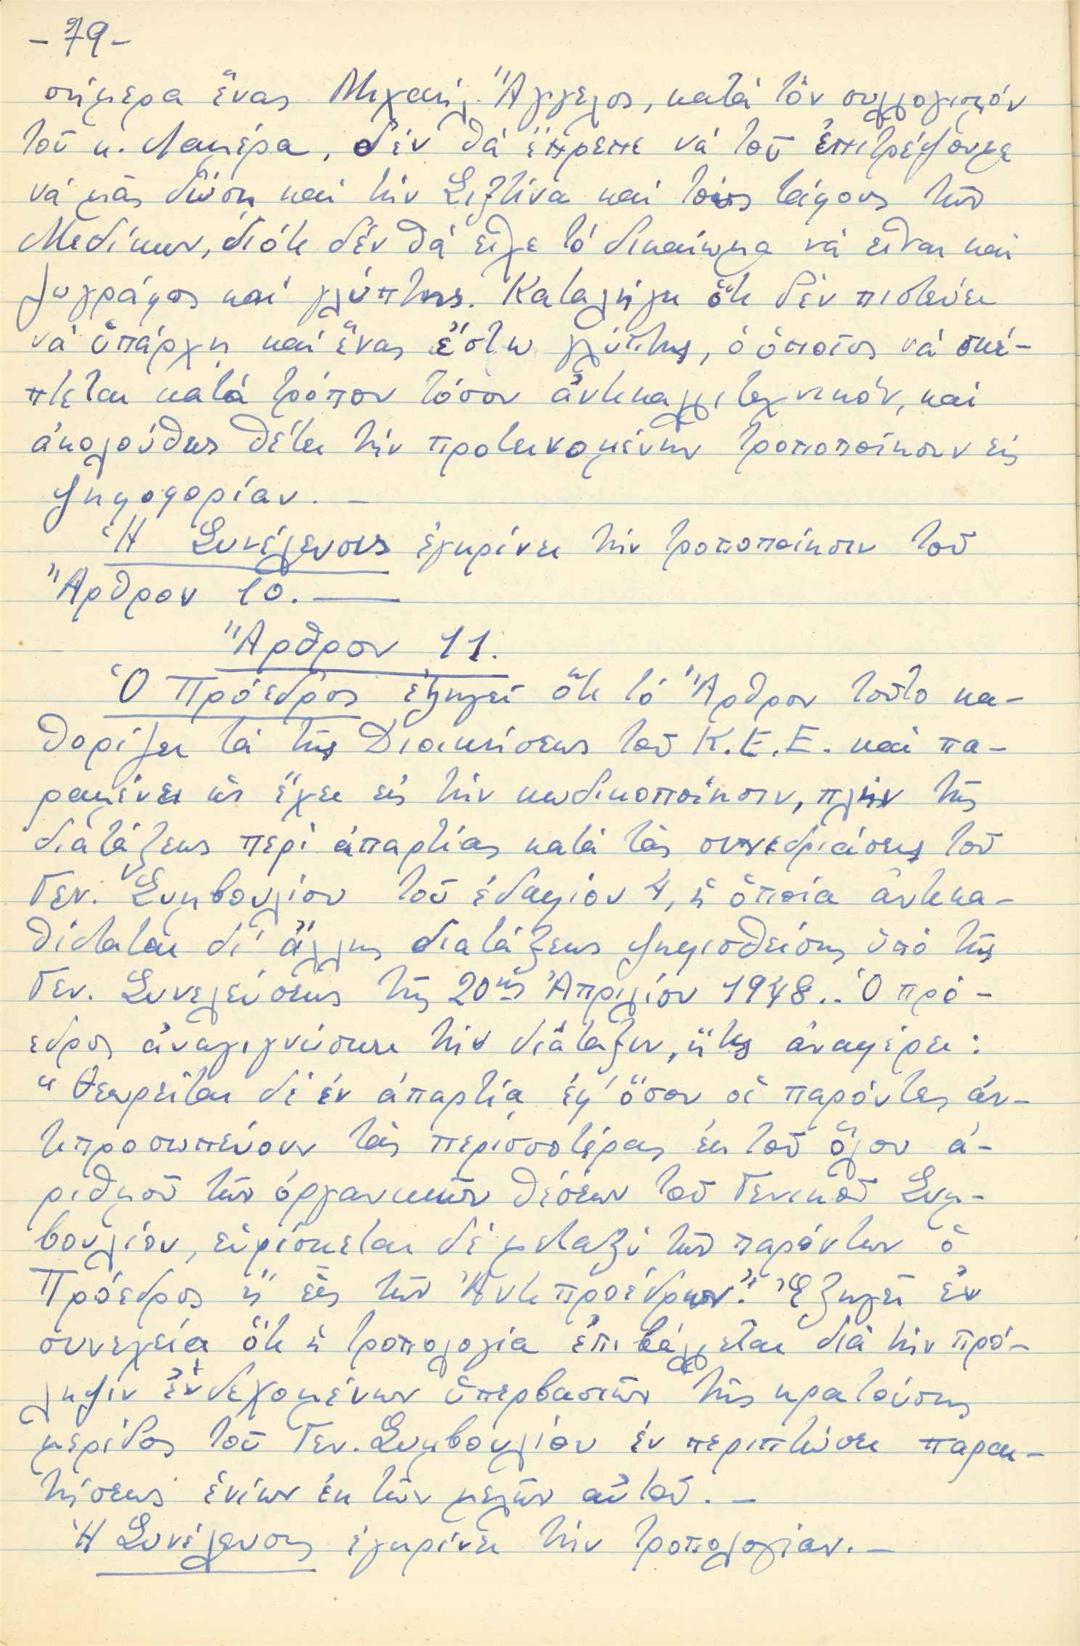 - 79 -
σήμερα ἕνας Μιχαήλ Ἄγγελος, κατά τόν συλλογισμόν
τοῦ κ. Λαμέρα, δέν θά ἔπρεπε νά τοῦ ἐπιτρέψουμε
νά μᾶς δώση καί τήν Σιξτίνα καί τούς τάφους τῶν
Μεδίκων, διότι δέν θά εἶχε τό δικαίωμα νά εἶναι καί
ζωγράφος καί γλύπτης. Καταλήγει ὅτι δέν πιστεύει
νά ὑπάρχη καί ἕνας ἔστω γλύπτης, ὁ ὁποῖος νά σκέ-
πτεται κατά τρόπον τόσον ἀντικαλλιτεχνικόν, καί
ἀκολούθως θέτει τήν προτεινομένην τροποποίησιν εἰς
ψηφοφορίαν. -
Ἡ Συνέλευσις ἐγκρίνει τήν τροποποίησιν τοῦ
Ἄρθρον 10. —
Ἄρθρον 11.
Ὁ Πρόεδρος ἐξηγεῖ ὅτι τό Ἄρθρον τοῦτο κα-
θορίζει τά τῆς Διοικήσεως τοῦ Κ.Ε.Ε. καί πα-
ραμένει ὡς ἔχει εἰς τήν κωδικοποίησιν, πλήν τῆς
διατάξεως περί ἀπαρτίας κατά τάς συνεδριάσεις τοῦ
Γεν. Συμβουλίου τοῦ ἐδαφίου 4, ἡ ὁποία ἀντικα-
θίσταται δι' ἄλλης διατάξεως ψηφισθείσης ὑπό τῆς
Γεν. Συνελεύσεως τῆς 20ῆς Ἀπριλίου 1948.. Ὁ πρό-
εδρος ἀναγιγνώσκει τήν διάταξιν, ἥτις ἀναφέρει:
"Θεωρεῖται δέ ἐν ἀπαρτίᾳ ἐφ' ὅσον οἱ παρόντες ἀν-
τιπροσωπεύουν τάς περισσοτέρας ἐκ τοῦ ὅλου ἀ-
ριθμοῦ τῶν ὀργανικῶν θέσεων τοῦ Γενικοῦ Συμ-
βουλίου, εὑρίσκεται δέ μεταξύ τῶν παρόντων ὁ
Πρόεδρος ἤ εἷς τῶν Ἀντιπροέδρων". Ἐξηγεῖ ἐν
συνεχεία ὅτι ἡ τροπολογία ἐπιβάλλεται διά τήν πρό-
ληψιν ἐνδεχομένων ὑπερβασιῶν τῆς κρατούσης
μερίδος τοῦ Γεν. Συμβουλίου ἐν περιπτώσει παραι-
τήσεως ἐνίων ἐκ τῶν μελῶν αὐτοῦ. -
Ἡ Συνέλευσις ἐγκρίνει τήν τροπολογίαν. -